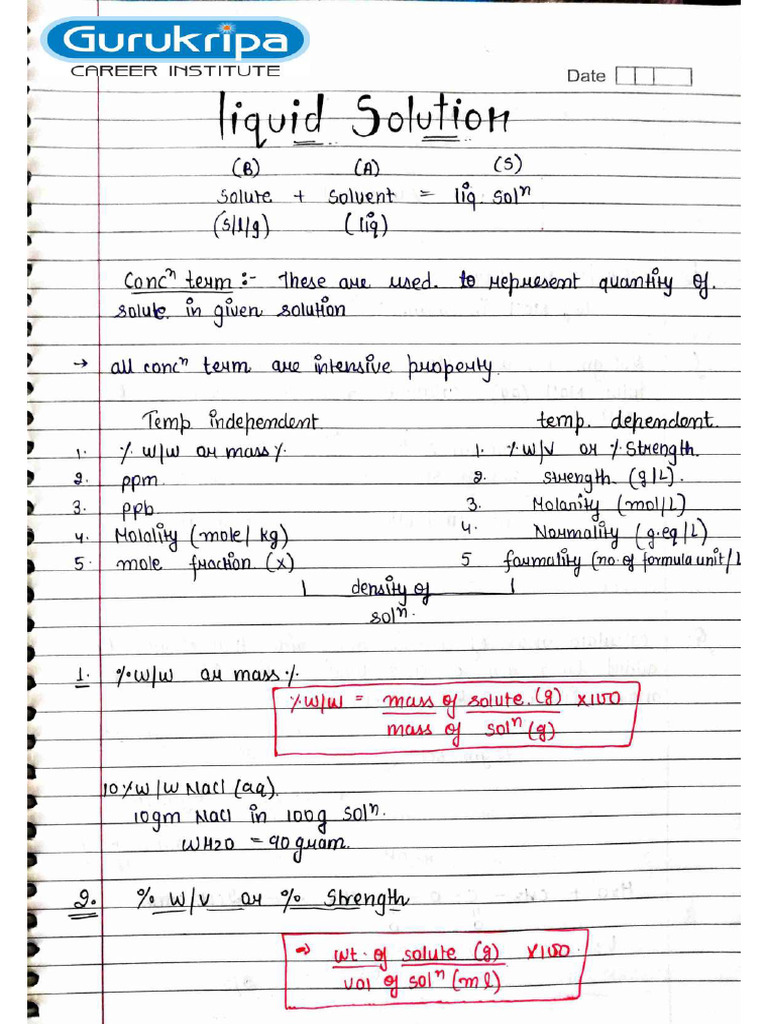 Gurukripa
CAREER INSTITUTE
Date
liquid Solution
(B) (A) (S)
Solute + Solvent = liq. solⁿ
(s/l/g) (liq)
Concⁿ term :- These are used to represent quantity of
solute in given solution
→ all concⁿ term are intensive property.
Temp independent temp. dependent.
1. % w/w or mass % 1. % w/v or % Strength.
2. ppm 2. Strength (g/L).
3. ppb 3. Molarity (mol/L)
4. Molality (mole/kg) 4. Normality (g.eq/L)
5. mole fraction (x) 5 formality (no. of formula unit/L
density of
solⁿ.
1. % w/w or mass %
% w/w = mass of solute (g) ×100
mass of solⁿ (g)
10 % w/w NaCl (aq).
10gm NaCl in 100g solⁿ.
WH2O = 90 gram.
2. % w/v or % Strength
⇒ wt. of solute (g) ×100
vol of solⁿ (ml)